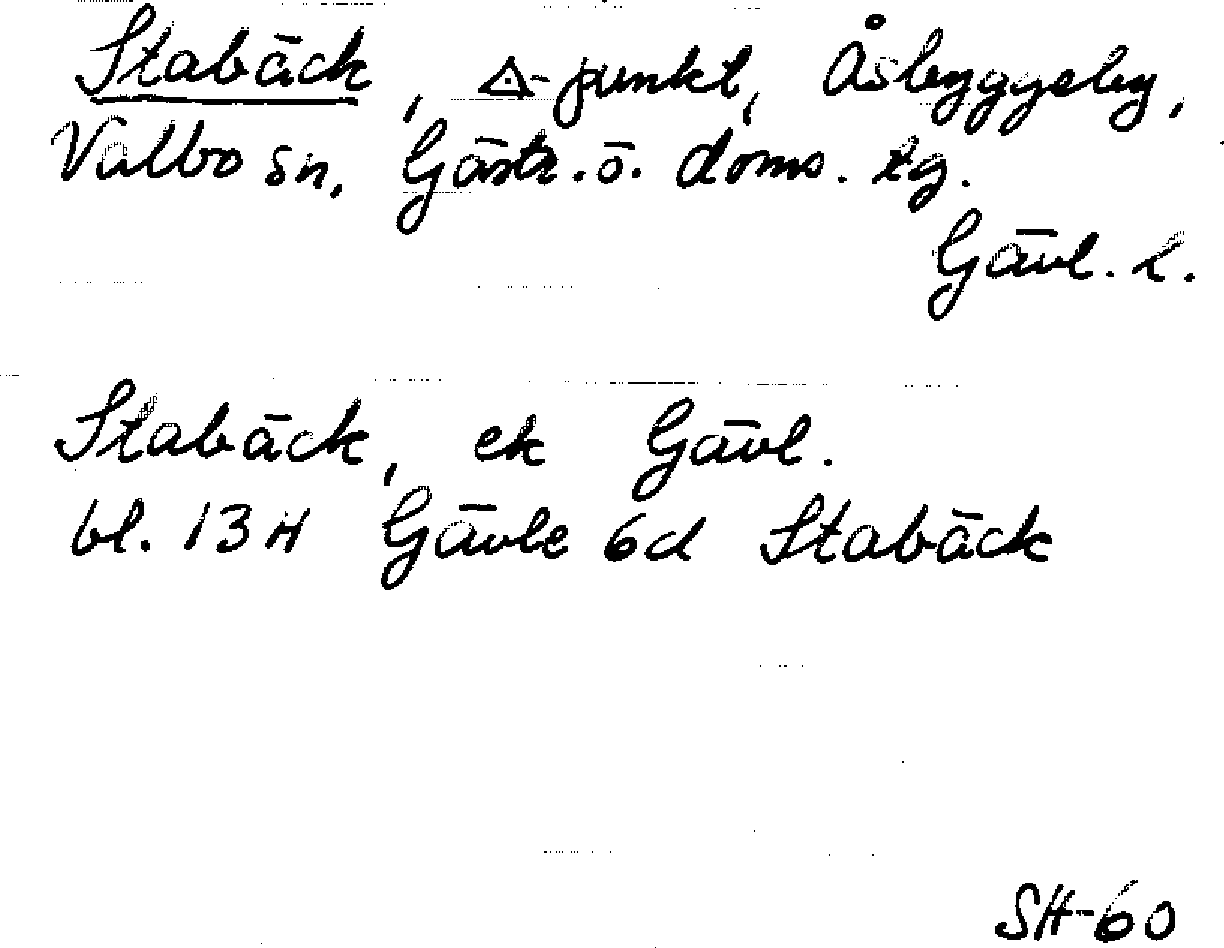 Stabäck, △-punkt, Åsbyggeby,
Valbo sn, Gästr. ö. doms. tg.
Gävl. l.
Stabäck, ek Gävl.
bl. 13H Gävle 6d Stabäck
SH-60